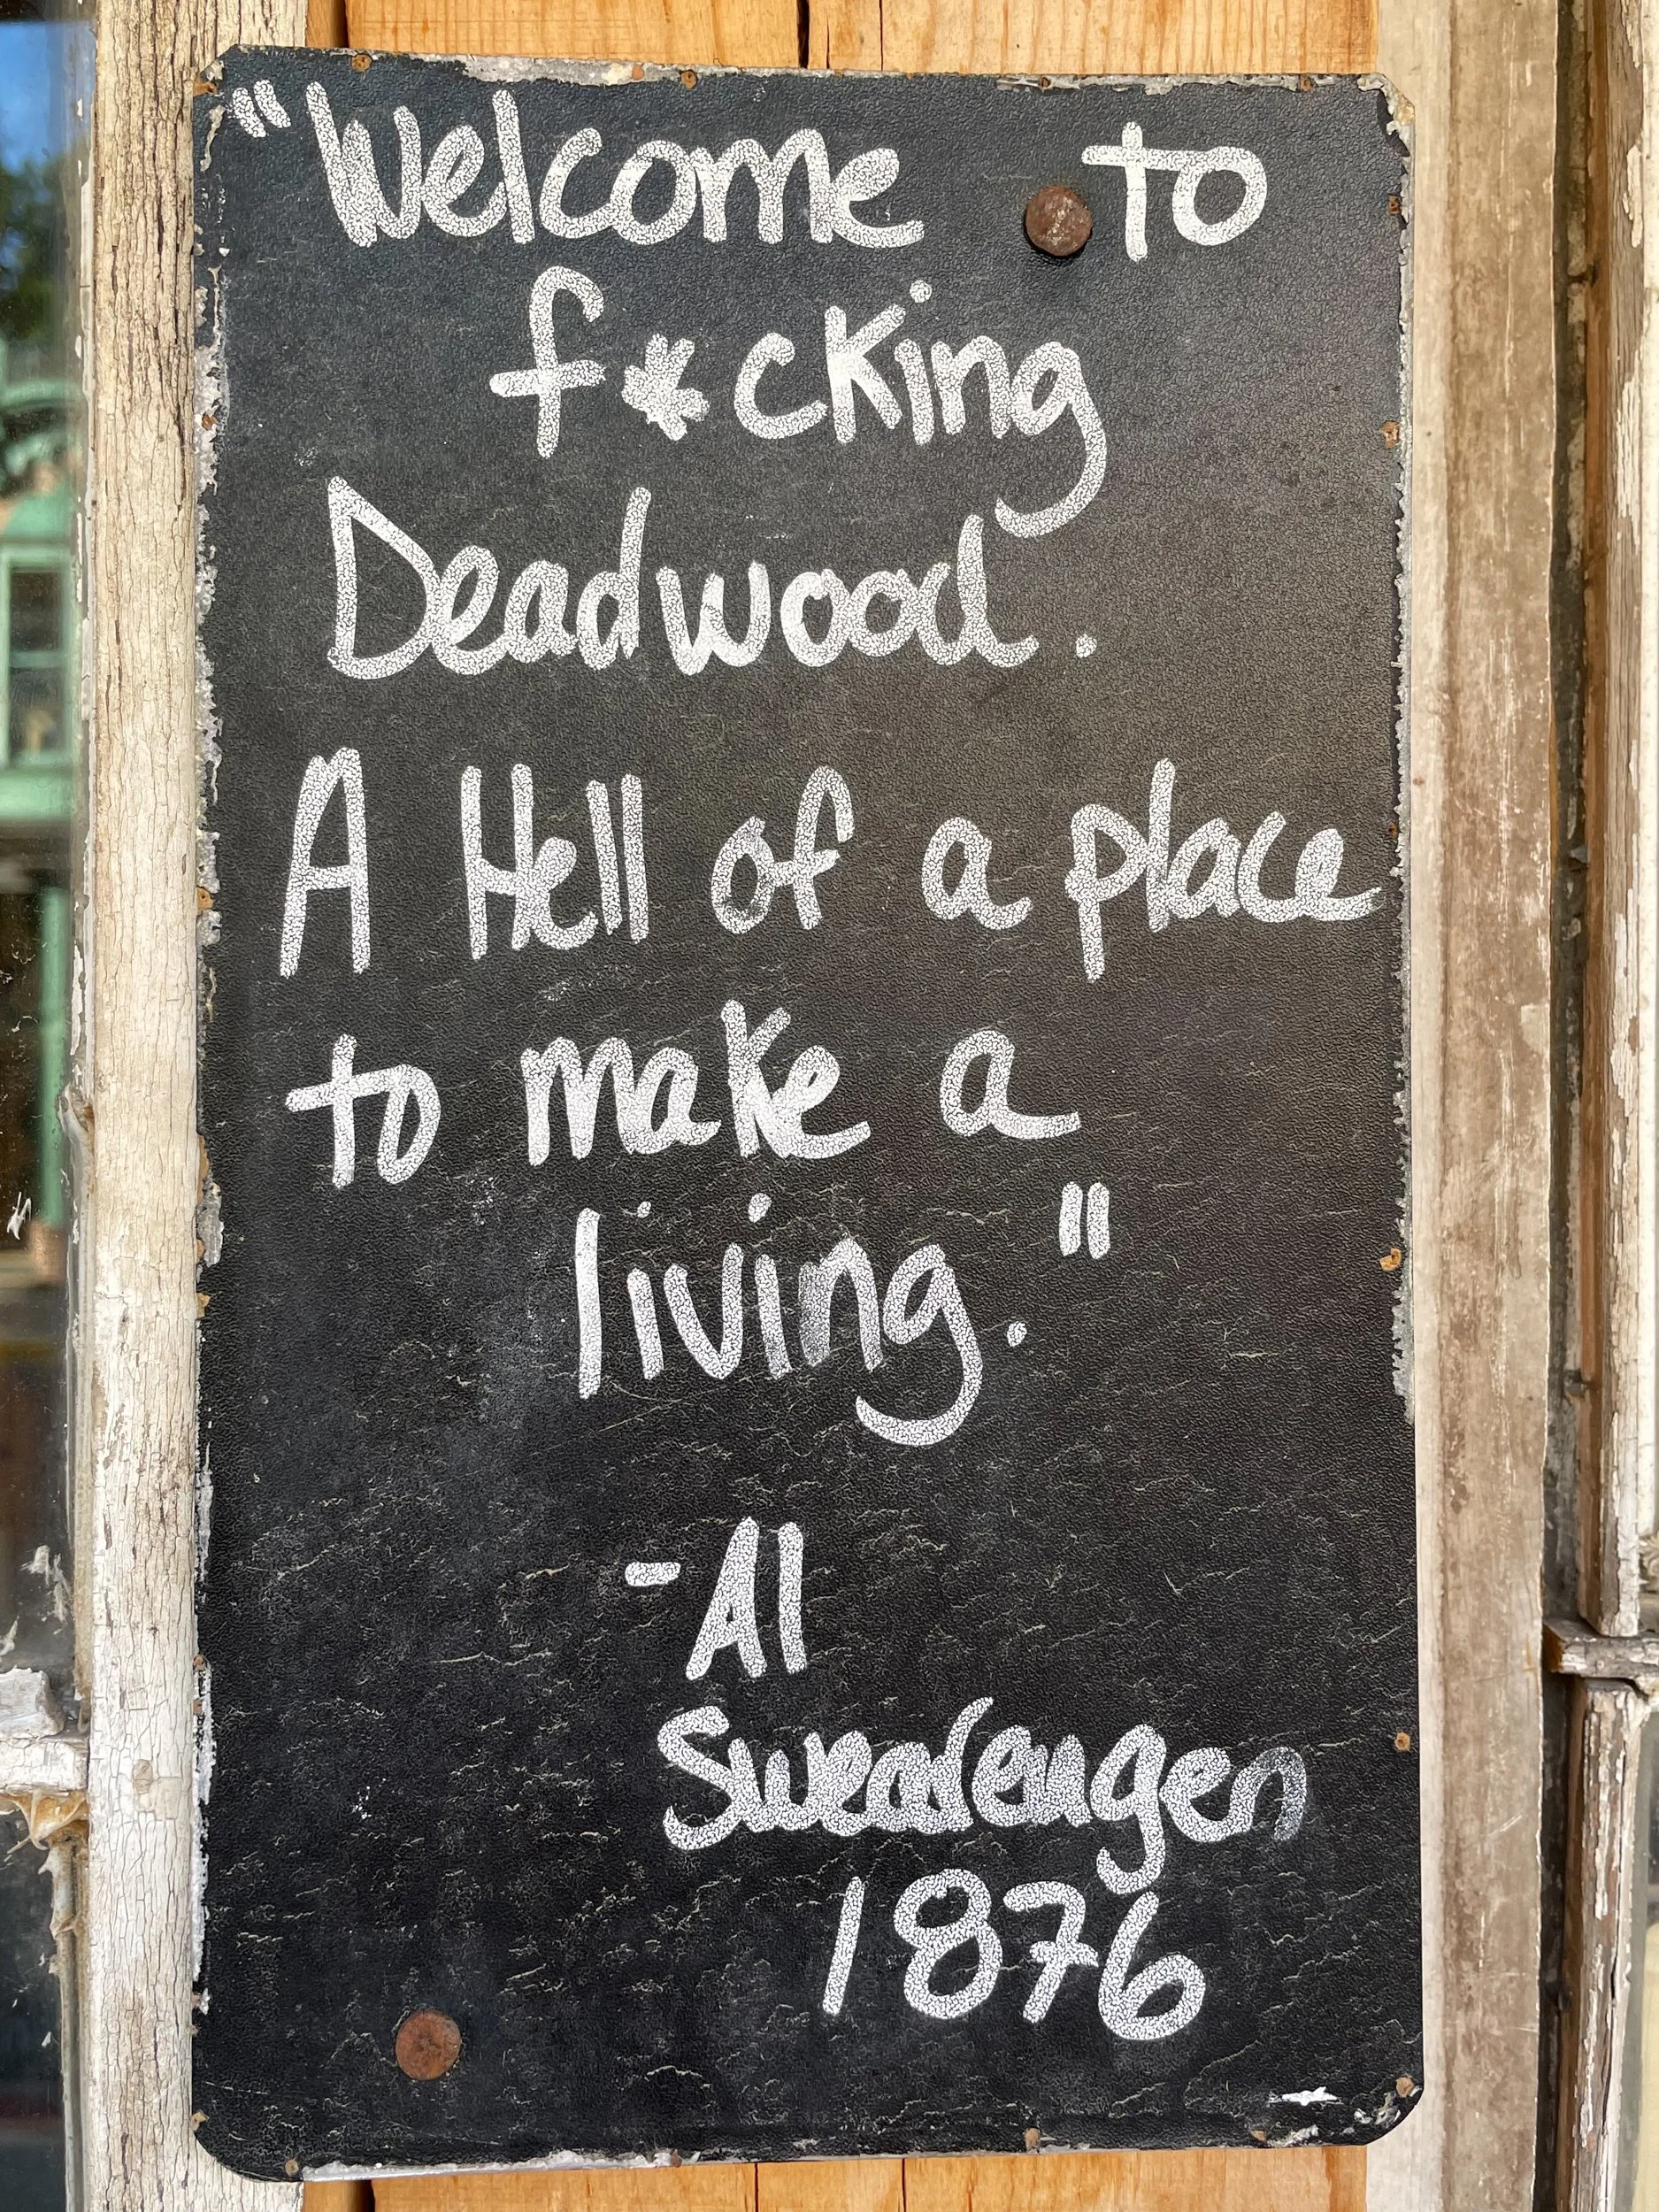 "Welcome to
f*cking
Deadwood.
A Hell of a place
to make a
living."
-Al
Swearengen
1876